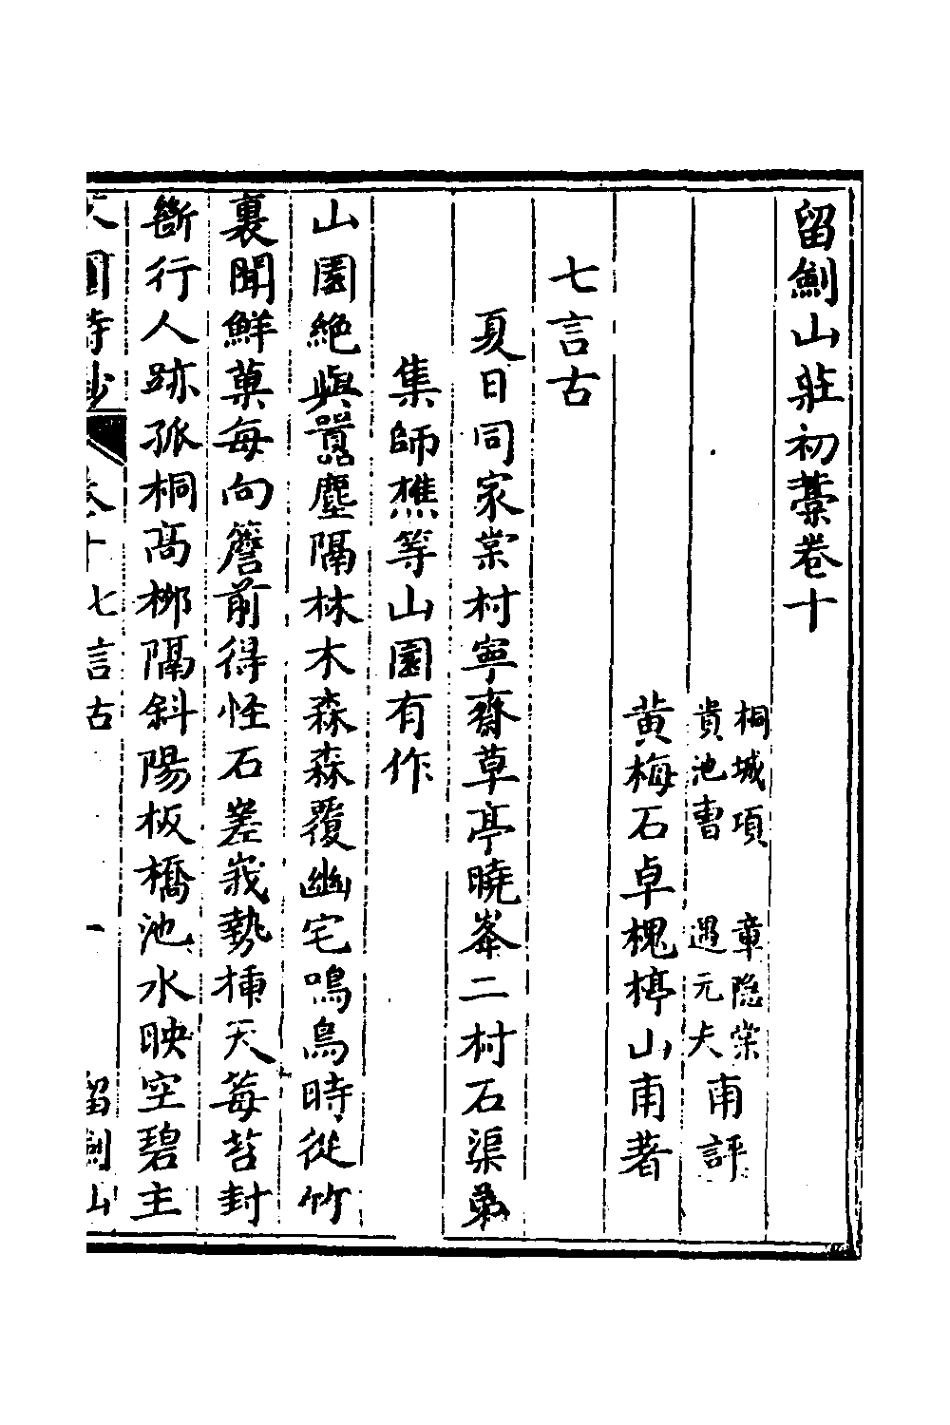 留劍山莊初藁卷十
桐城項　章隱棠
貴池曹　遇元夫甫評
黃梅石卓槐榑山甫著
七言古
夏日同家棠村寧齋草亭曉峯二村石渠弟
集師樵等山園有作
山園絶與嚣塵隔林木森森覆幽宅鳴鳥時從竹
裏聞鮮菓每向簷前得怪石嵳峩勢揷天莓苔封
斷行人跡孤桐高柳隔斜陽板橋池水映空碧主
卷十七言古　一　留劍山